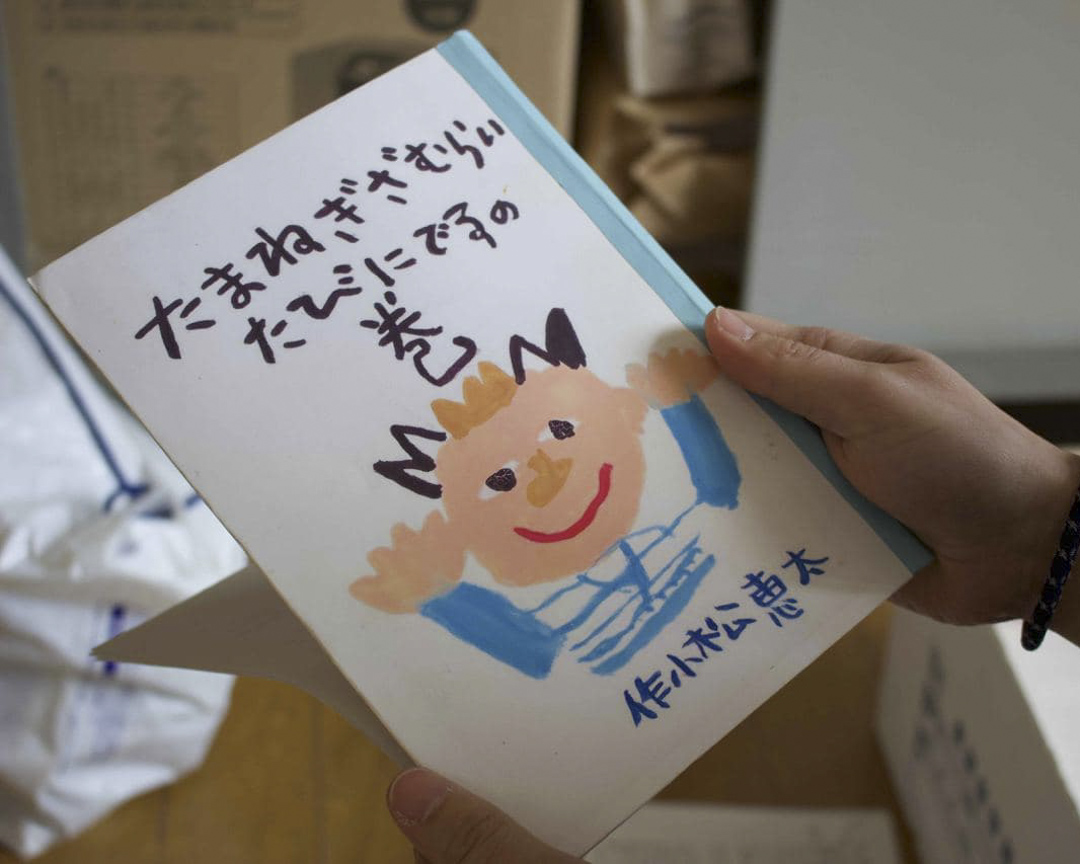 たまねぎざむらい
たびにですの
巻
作小松恵太